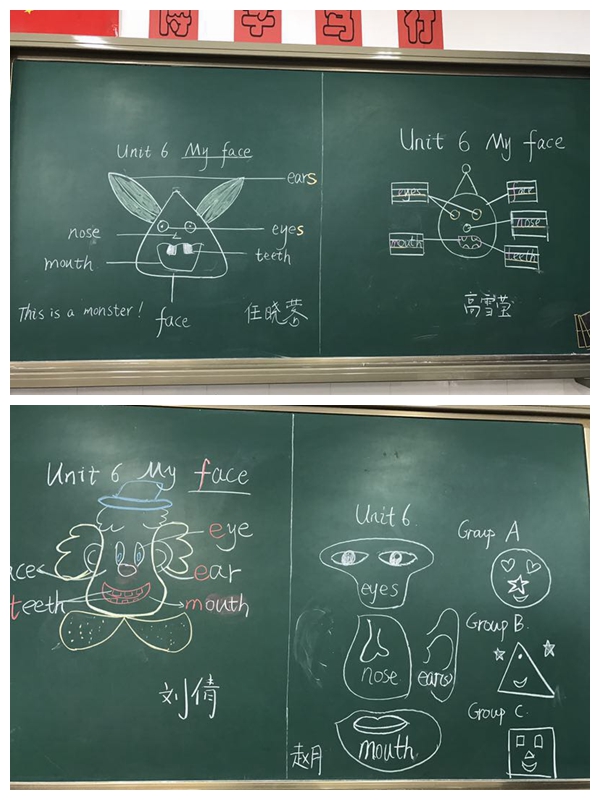 博学笃行
Unit 6 My face
ears
nose
eyes
mouth
teeth
This is a monster!
face
任晓
Unit 6 My face
eyes
face
nose
mouth
teeth
高雪莹
Unit 6 My face
eye
ace
ear
teeth
mouth
刘倩
Unit 6.
eyes
nose
ears
mouth
赵月
Group A
Group B.
Group C.